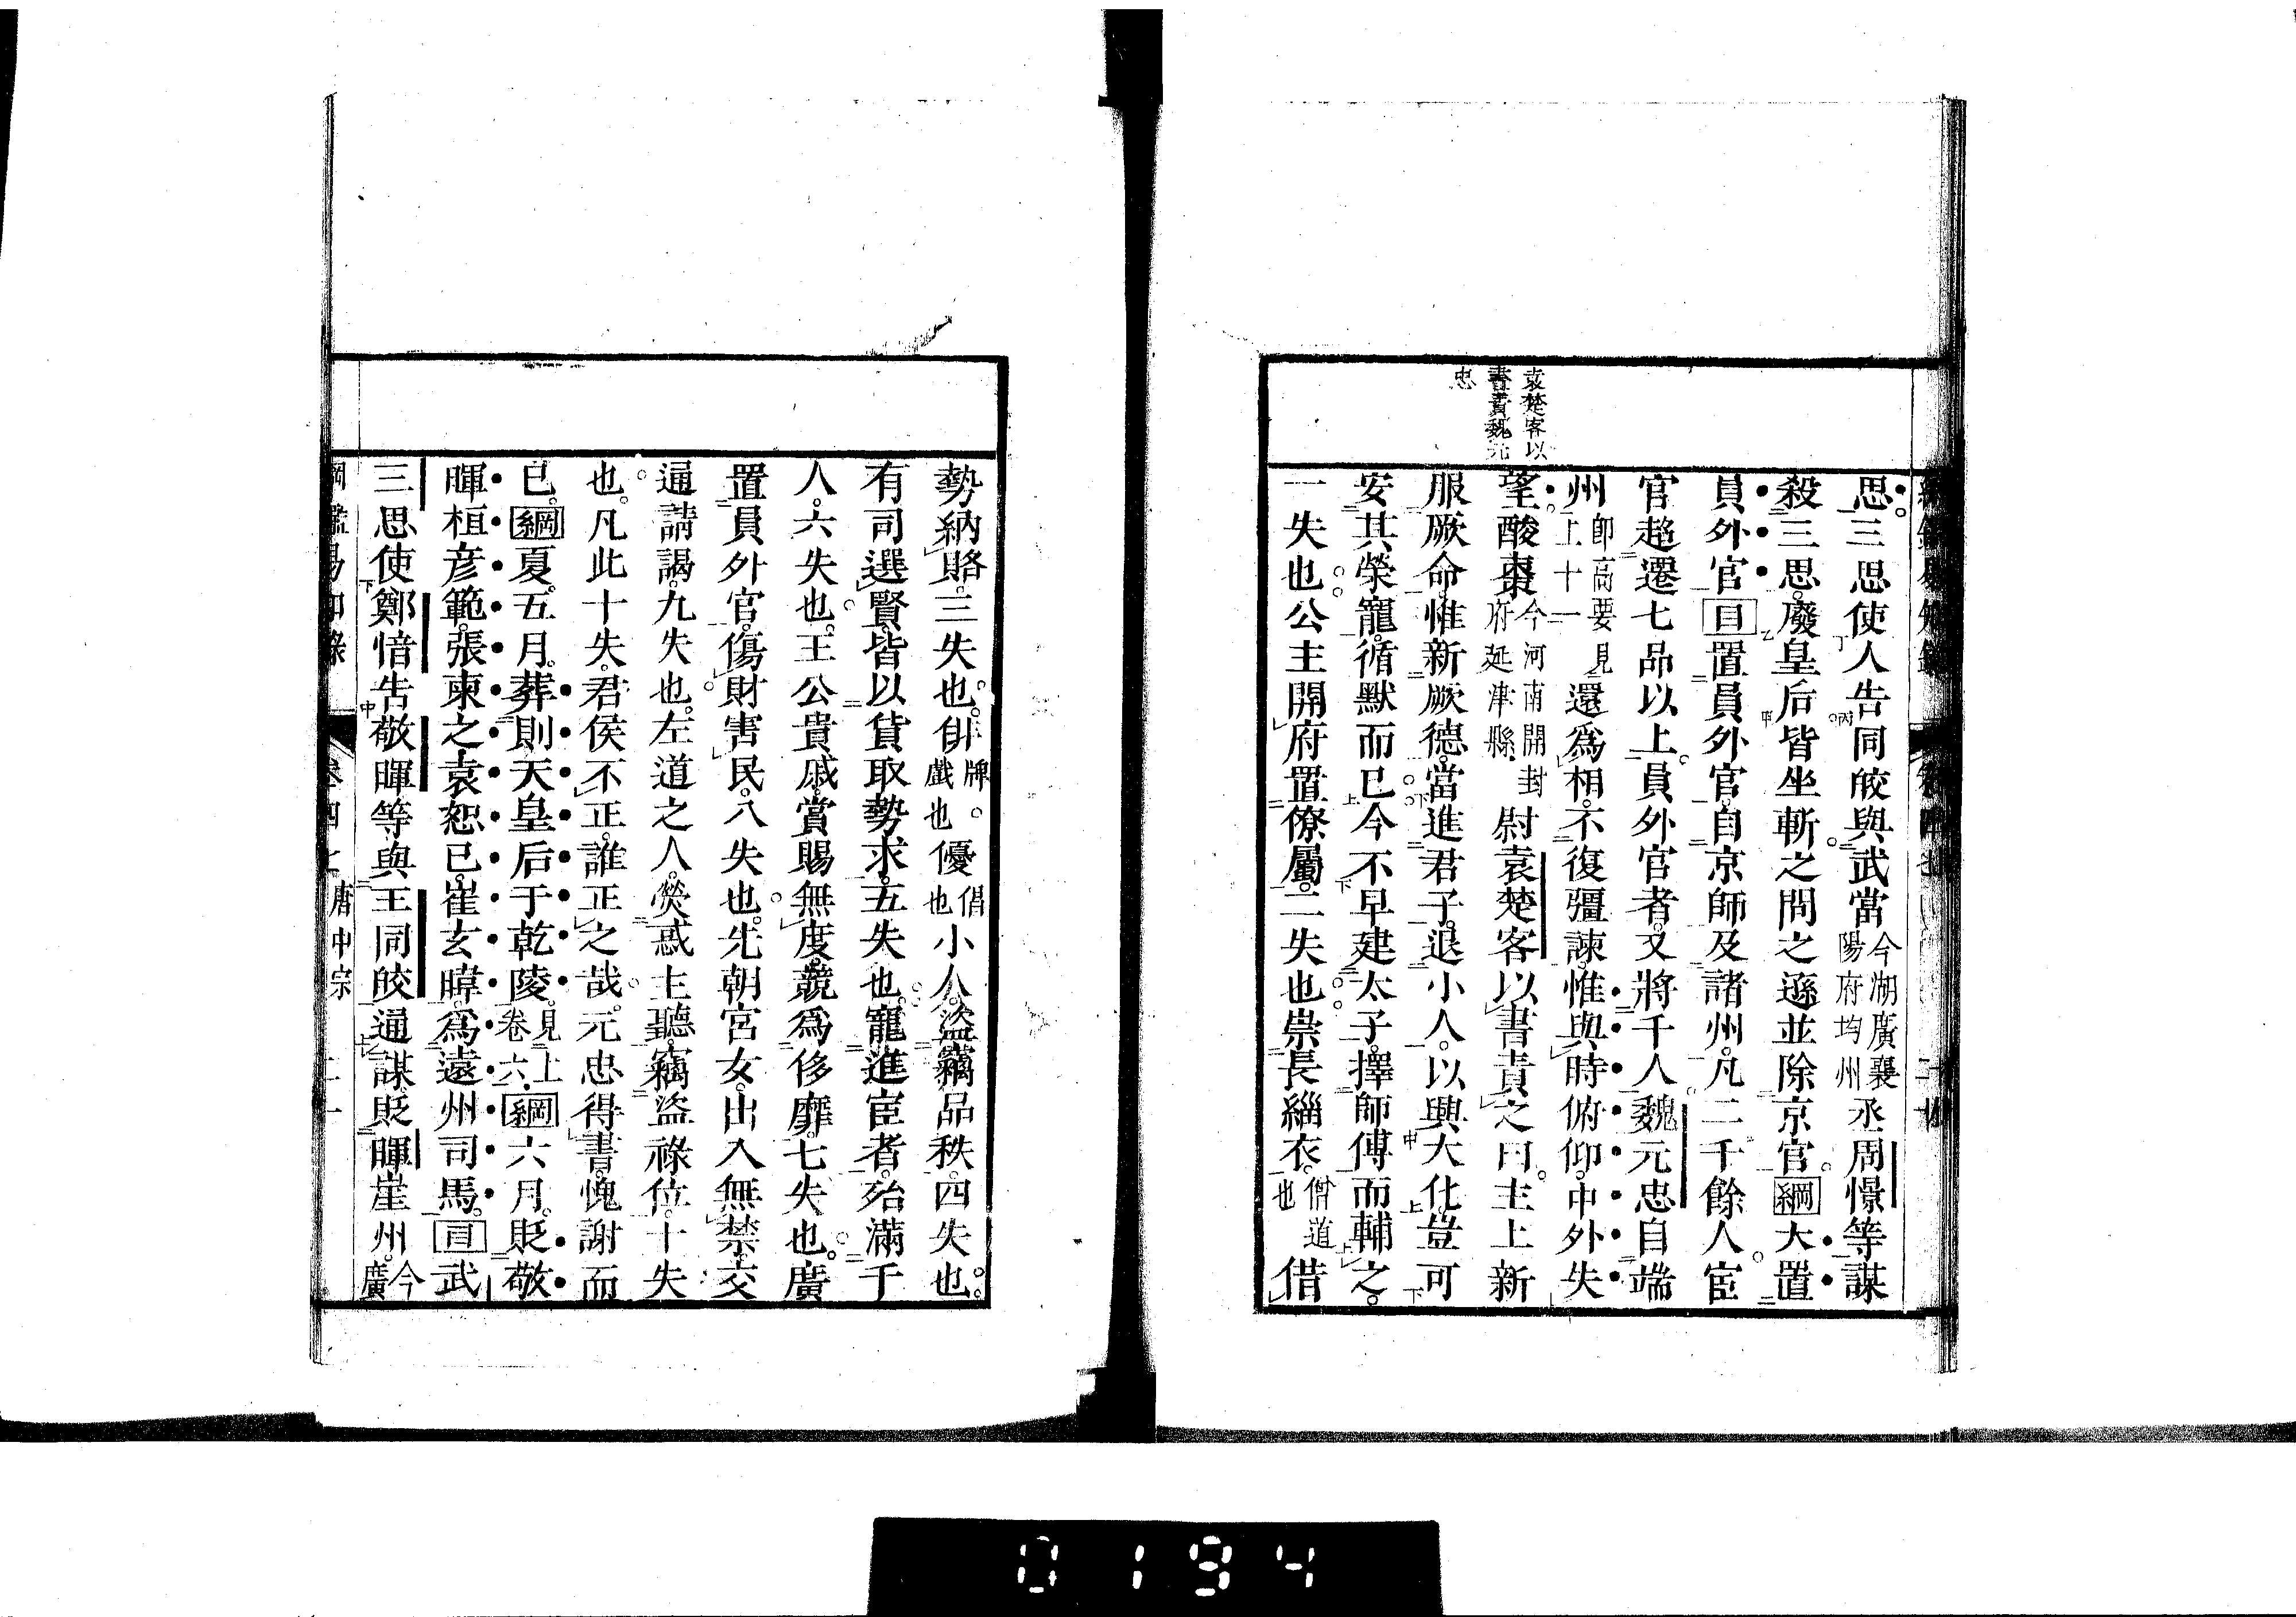 袁楚客以
書責魏元
忠
思三思使人告同皎與武當今湖廣襄陽府均州丞周憬等謀
殺三思廢皇后皆坐斬之問之遜並除京官綱大置
員外官目置員外官自京師及諸州凡二千餘人宦
官超遷七品以上員外官者又將千人魏元忠自端
州即高要見上十一還爲相不復彊諫惟與時俯仰中外失
望酸棗今河南開封府延津縣尉袁楚客以書責之曰主上新
服厥命惟新厥德當進君子退小人以興大化豈可
安其榮寵循默而已今不早建太子擇師傅而輔之
一失也公主開府置僚屬二失也崇長緇衣僧道也借
勢納賂三失也俳牌戲也優倡也小人盜竊品秩四失也
有司選賢皆以貨取勢求五失也寵進宦者殆滿千
人六失也王公貴戚賞賜無度競爲侈靡七失也廣
置員外官傷財害民八失也先朝宮女出入無禁交
通請謁九失也左道之人熒惑主聽竊盜祿位十失
也凡此十失君侯不正誰正之哉元忠得書愧謝而
已綱夏五月葬則天皇后于乾陵見上卷六綱六月貶敬
暉桓彥範張柬之袁恕已崔玄暐爲遠州司馬目武
三思使鄭愔告敬暉等與王同皎通謀貶暉崖州今廣
綱鑑易知錄 卷四七 唐中宗 二一
0194